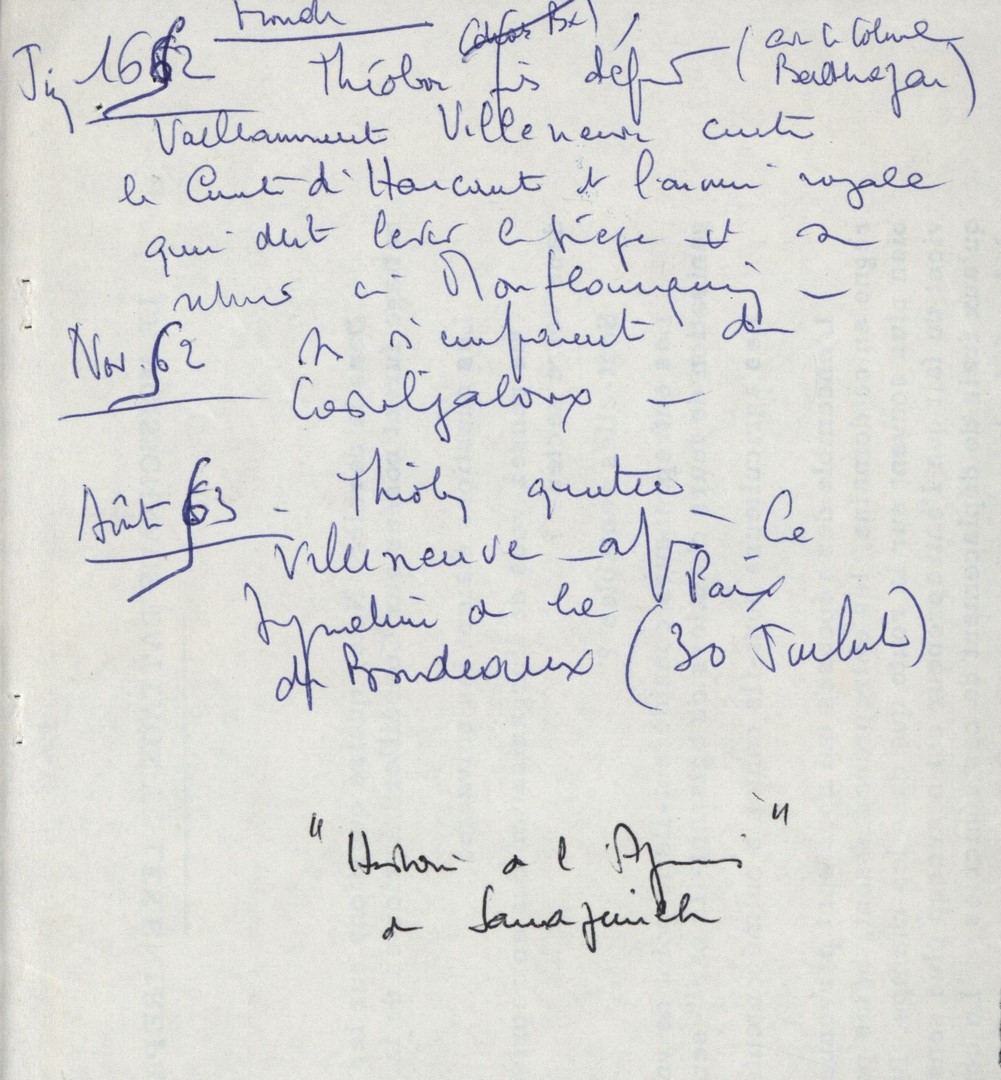 Fronde
Juin 1652 Théobon fils défend (avec le Colonel
Balthazar)
Vaillamment Villeneuve contre
le Comte d'Harcourt et l'armée royale
qui doit lever le siège et se
retirer à Monflanquin –
Nov. 52 Ils s'emparent de
Casteljaloux –
Août 53 - Théobon quitte
Villeneuve après la
signature de la Paix
de Bordeaux (30 Juillet)
"Histoire de l'Agenais"
de Samazeuilh